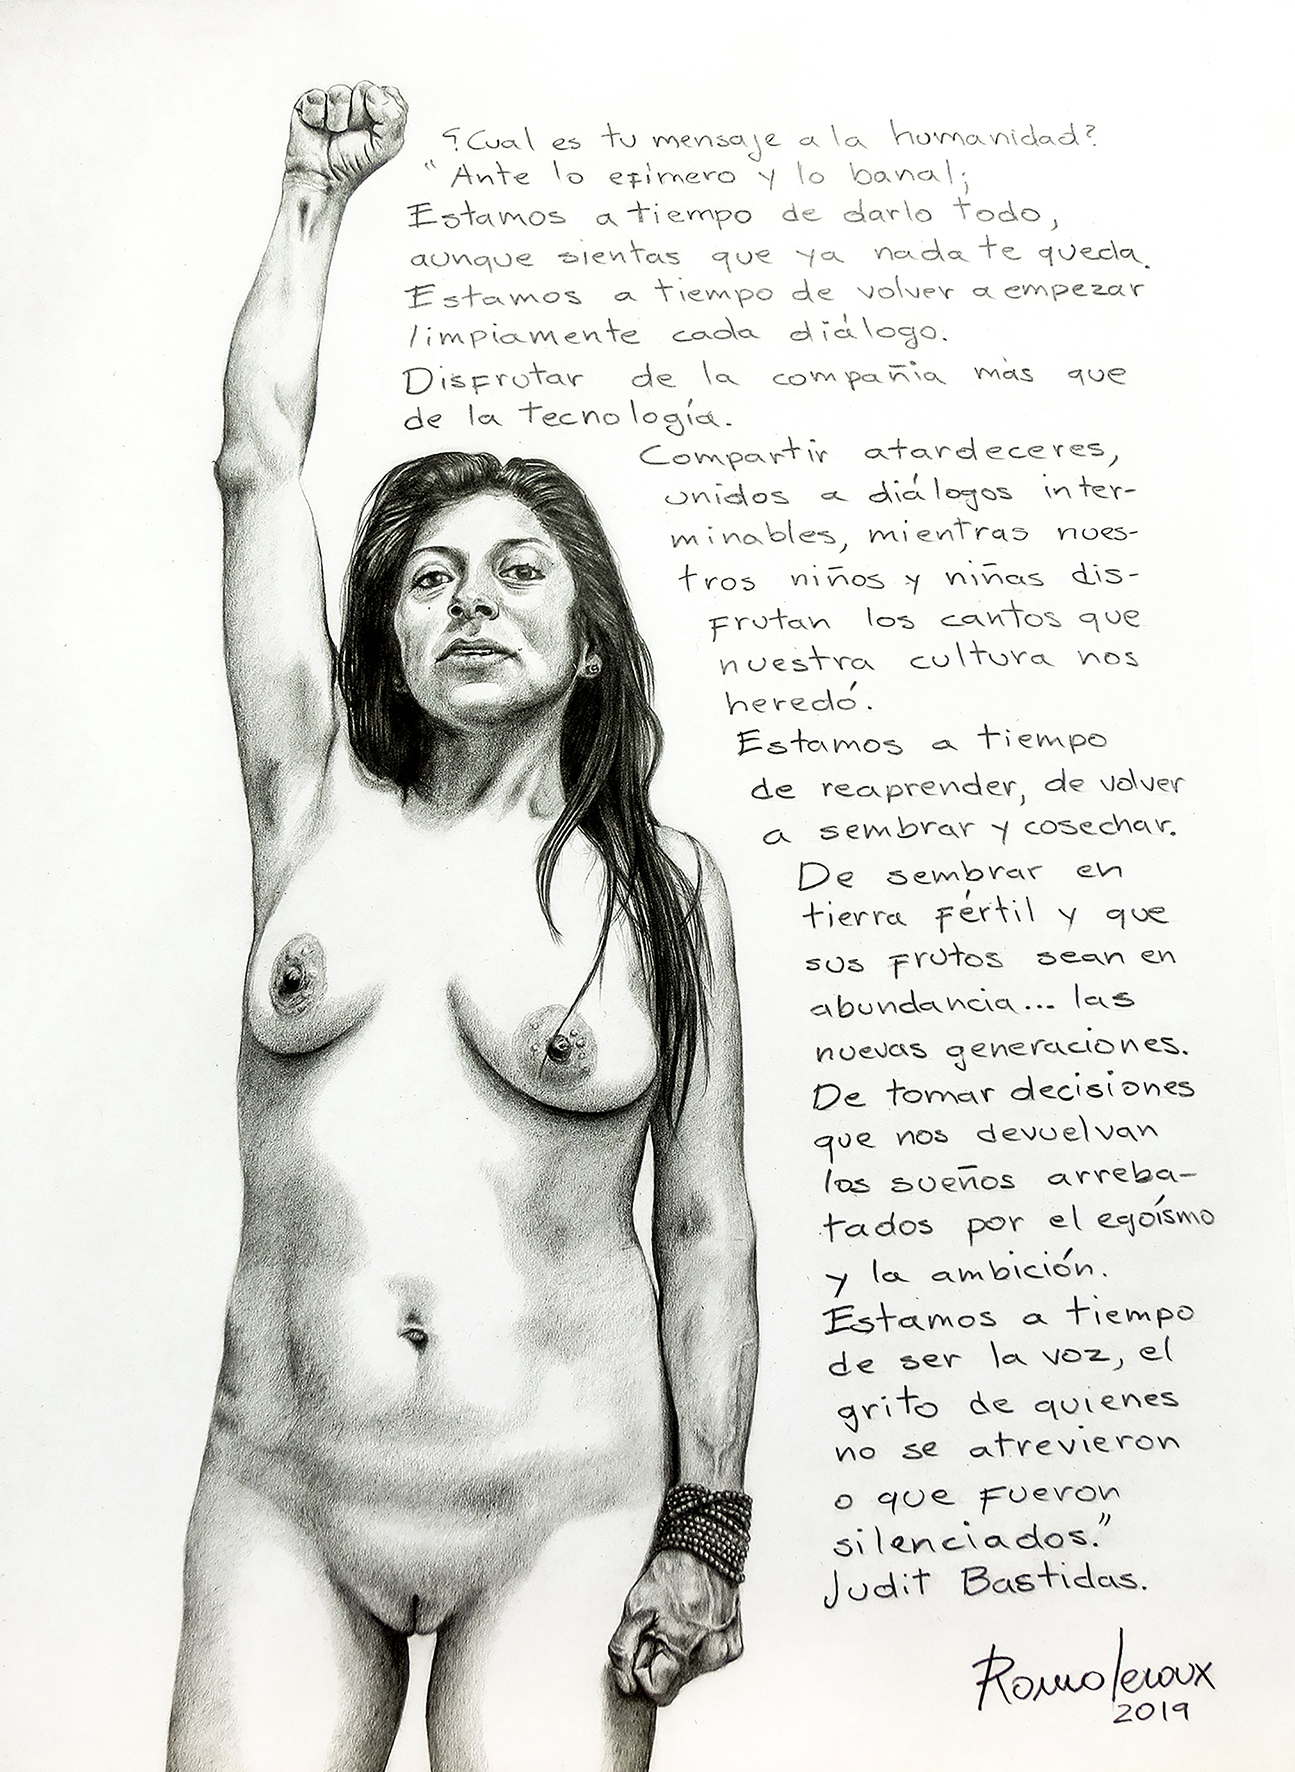 ¿Cual es tu mensaje a la humanidad?
"Ante lo efímero y lo banal;
Estamos a tiempo de darlo todo,
aunque sientas que ya nada te queda.
Estamos a tiempo de volver a empezar
limpiamente cada diálogo.
Disfrutar de la compañia más que
de la tecnología.
Compartir atardeceres,
unidos a diálogos inter-
minables, mientras nues-
tros niños y niñas dis-
frutan los cantos que
nuestra cultura nos
heredó.
Estamos a tiempo
de reaprender, de volver
a sembrar y cosechar.
De sembrar en
tierra fértil y que
sus frutos sean en
abundancia... las
nuevas generaciones.
De tomar decisiones
que nos devuelvan
los sueños arreba-
tados por el egoísmo
y la ambición.
Estamos a tiempo
de ser la voz, el
grito de quienes
no se atrevieron
o que fueron
silenciados."
Judit Bastidas.
Romoleroux
2019